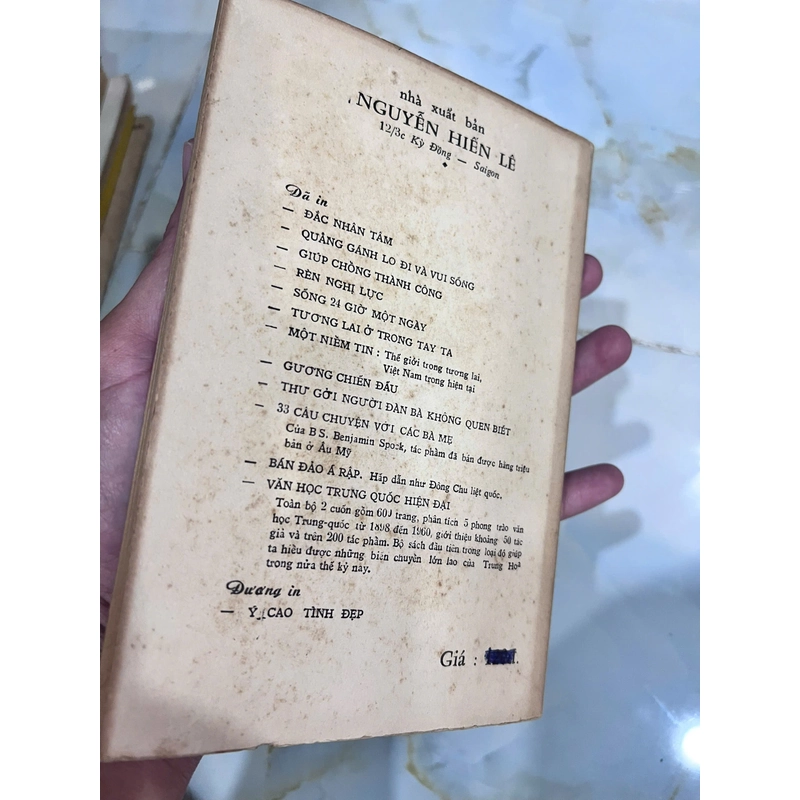 nhà xuất bản
NGUYỄN HIẾN LÊ
12/3c Kỳ Đồng — Saigon
Đã in
— ĐẮC NHÂN TÂM
— QUẲNG GÁNH LO ĐI VÀ VUI SỐNG
— GIÚP CHỒNG THÀNH CÔNG
— RÈN NGHỊ LỰC
— SỐNG 24 GIỜ MỘT NGÀY
— TƯƠNG LAI Ở TRONG TAY TA
— MỘT NIỀM TIN : Thế giới trong tương lai,
Việt Nam trong hiện tại
— GƯƠNG CHIẾN ĐẤU
— THƯ GỞI NGƯỜI ĐÀN BÀ KHÔNG QUEN BIẾT
— 33 CÂU CHUYỆN VỚI CÁC BÀ MẸ
Của B S. Benjamin Spock, tác phẩm đã bán được hàng triệu
bản ở Âu Mỹ
— BÁN ĐẢO Ả RẬP. Hấp dẫn như Đông Chu liệt quốc.
— VĂN HỌC TRUNG QUỐC HIỆN ĐẠI
Toàn bộ 2 cuốn gồm 600 trang, phân tích 5 phong trào văn
học Trung-quốc từ 1898 đến 1960, giới thiệu khoảng 50 tác
giả và trên 200 tác phẩm. Bộ sách đầu tiên trong loại đó giúp
ta hiểu được những biến chuyển lớn lao của Trung Hoa
trong nửa thế kỷ này.
Đương in
— Ý CAO TÌNH ĐẸP
Giá :